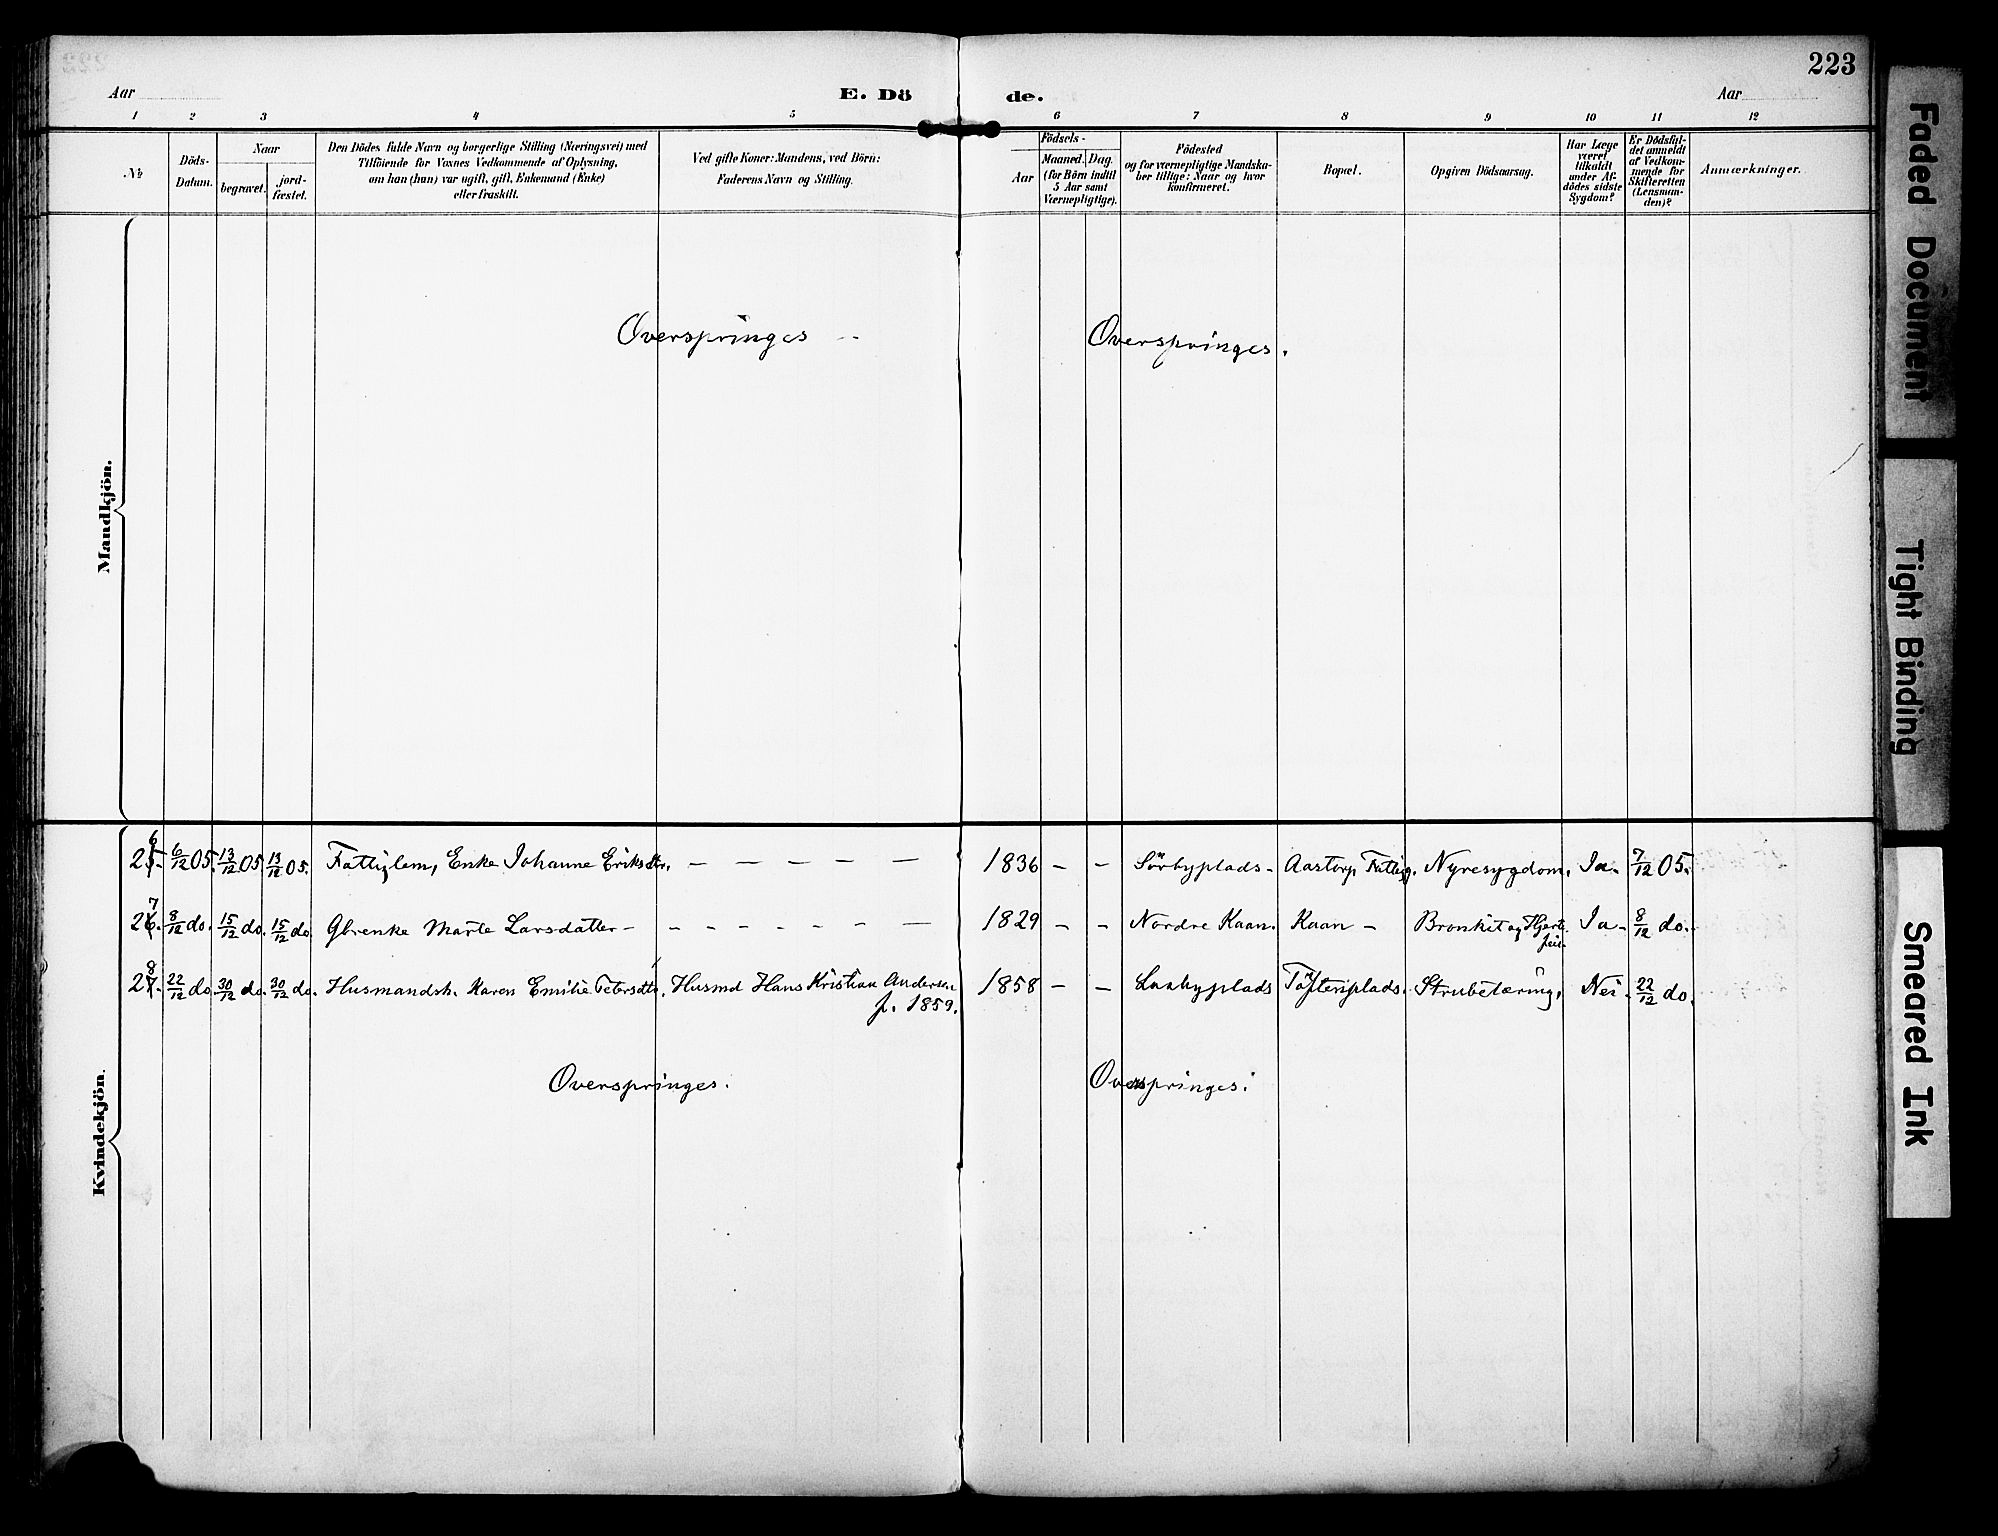 223
Aar
E. Dö
de.
Aar
1 2 3 4 5 6 7 8 9 10 11 12
№
Döds-
Datum.
Naar
begravet.
jord-
fæstet.
Den Dödes fulde Navn og borgerlige Stilling (Næringsvei) med
Tilföiende for Voxnes Vedkommende af Oplysning,
om han (hun) var ugift, gift, Enkemand (Enke)
eller fraskilt.
Ved gifte Koner: Mandens, ved Börn:
Faderens Navn og Stilling.
Födsels-
Aar
Maaned. Dag.
(for Börn indtil
5 Aar samt
Værnepligtige).
Födested
og for værnepligtige Mandska-
ber tillige: Naar og hvor
konfirmeret.
Bopæl.
Opgiven Dödsaarsag.
Har Læge
været
tilkaldt
under Af-
dödes sidste
Sygdom?
Er Dödsfal-
det anmeldt
af Vedkom-
mende for
Skifteretten
(Lensman-
den)?
Anmærkninger.
Mandkjön.
Overspringes -- Overspringes.
Kvindekjön.
26. 6/12 05. 13/12 05. 13/12 05. Fattiglem, Enke Johanne Eriksdtr. — — — — — 1836 — – Sörbyplads – Aastorp Fattigg. Nyresygdom. Ja. 7/12 05.
27. 8/12 do. 15/12 do. 15/12 do. Gbrenke Marte Larsdatter – – – – – – — 1829 – – Nordre Kaan. Kaan – Bronkit og Hjerte
feil. Ja – 8/12 do.
28. 22/12 do. 30/12 do. 30/12 do. Husmandsk. Karen Emilie Petersdtr. Husmd Hans Kristian Andersen
f. 1859. 1858 – – Lundbyplads Töftenplads. Strubetæring, Nei. 22/12 do.
Overspringes. Overspringes.
Faded Document
Tight Binding
Smeared Ink